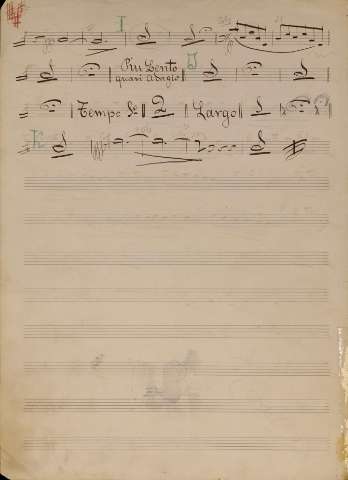 I
Piu Lento J
quasi Adagio
Tempo Io Largo
K